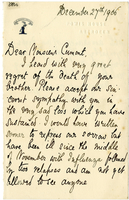 December 27th 1906
Dear Monsieur Cumont,
I heard with very great
regret of the Death of your
Brother. Please accept my sin-
cerest sympathy with you in
the very sad loss which you have
sustained. I would have written
sooner to express our sorrow but
have been ill since the middle
of November with Influenza followed
by two relapses and am not yet
allowed to see anyone